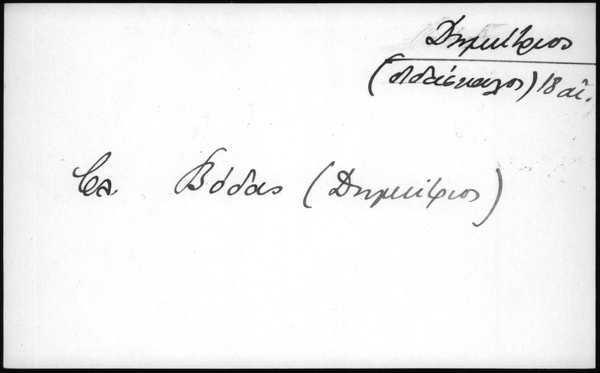 Δημήτριος
(διδάσκαλος) 18 αἰ.
βλ. Βόδας (Δημήτριος)